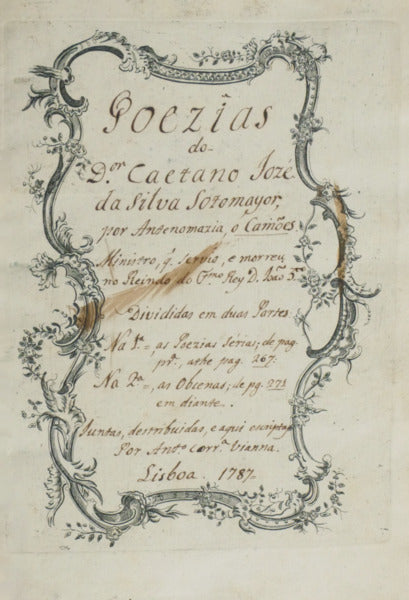 Poezîas
do
D.or Caetano Jozé
da Silva Sotomayor,
por Antenomazia, o Camões
Ministro, q. servio, e morreu
no Reindo do Sr. Rey D. João 5.º
Divididas em duas Partes
Na 1ª=, as Poezias Sérias; de pag.
prª. athe pag. 267.
Na 2ª=, as Obcenas; de pg. 273
em diante.
Juntas, destribuidas, e aqui escriptas
Por Antº Corr.ª Vianna.
Lisboa 1787=